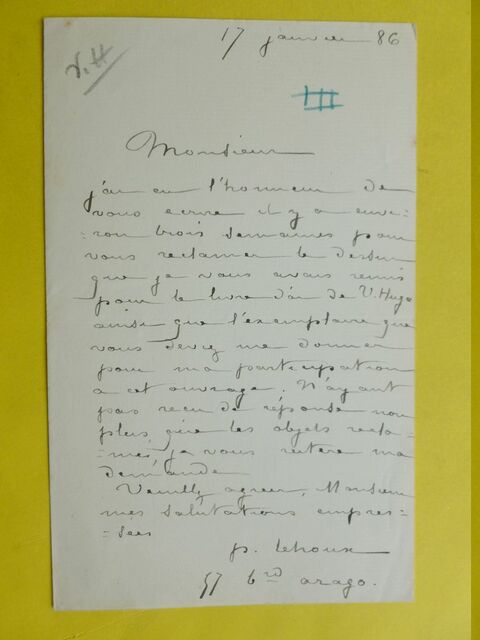 17 janvier 86
V. H
III
Monsieur
j'ai eu l'honneur de
vous ecrire il y a envi=
=ron trois semaines pour
vous reclamer le dessin
que je vous avais remis
pour le livre d'or de V. Hugo
ainsi que l'exemplaire que
vous deviez me donner
pour ma participation
a cet ouvrage. N'ayant
pas recu de réponse non
plus que les objets recla=
=més, je vous reitere ma
demande
Veuillez agreer, Monsieur
mes salutations empres=
=sées
p. Lehoux
57 Brd arago.